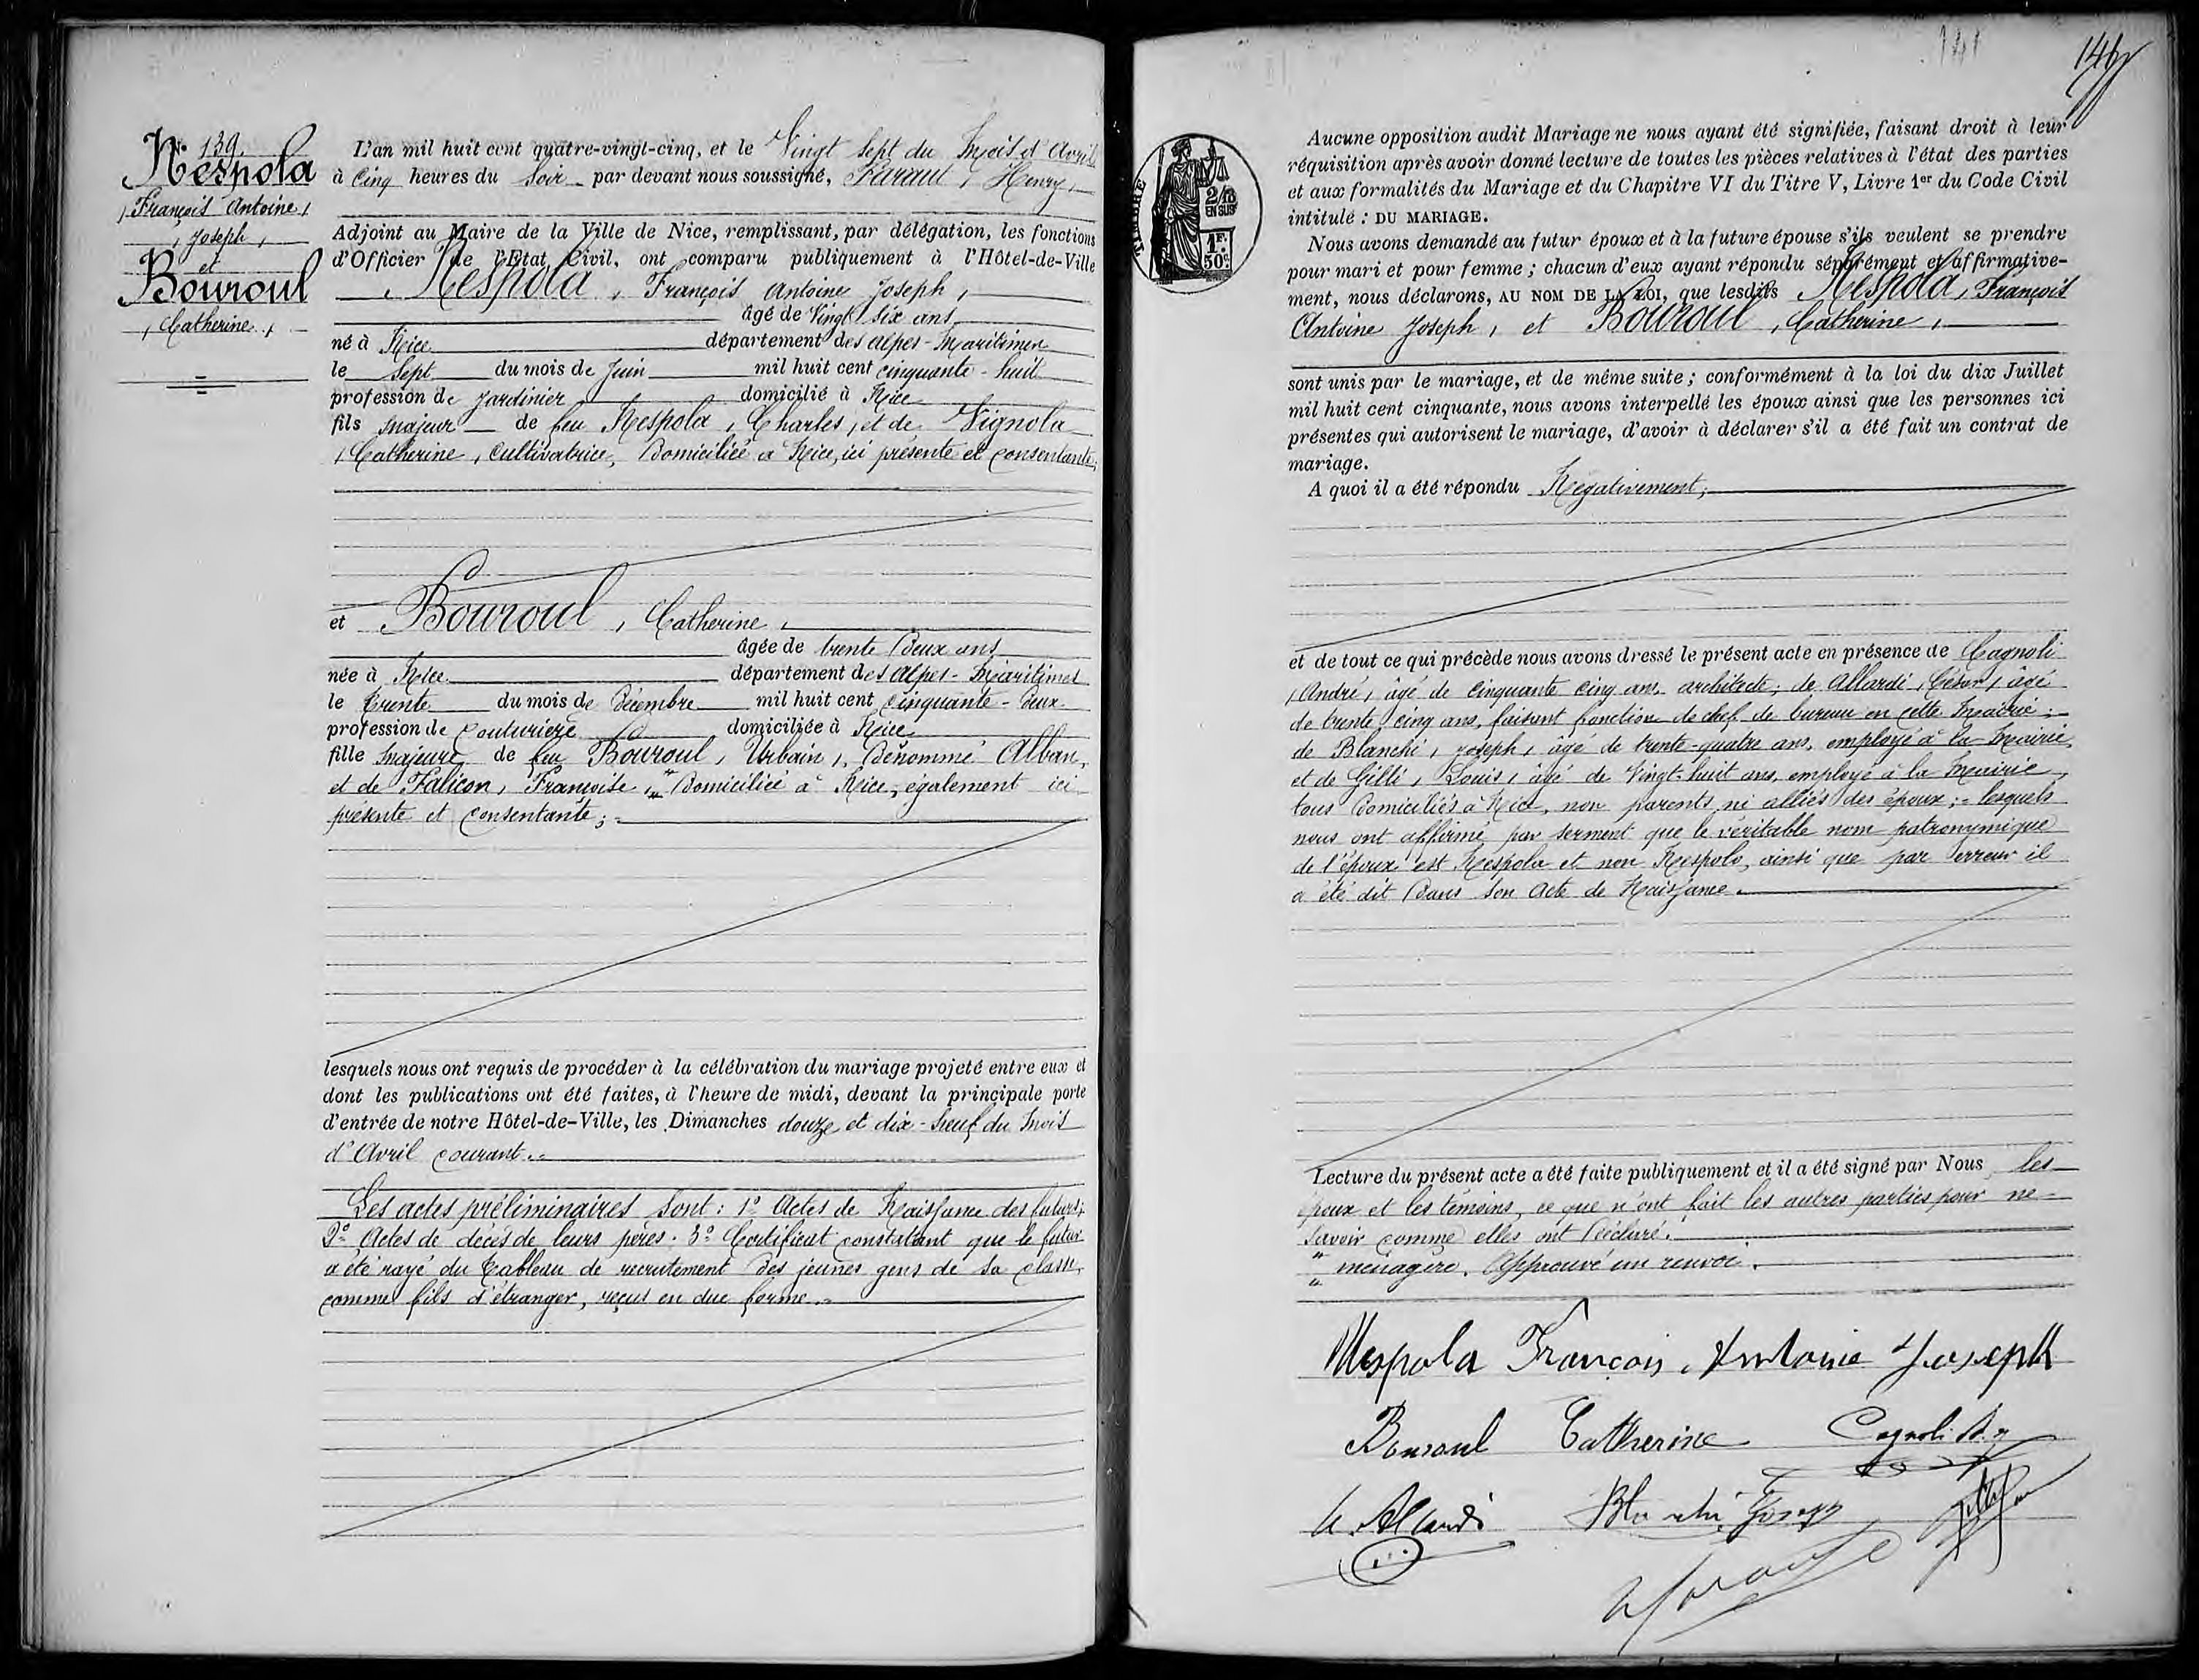 139.
Nespola
, François Antoine,
, Joseph,
et
Bouroul
, Catherine,
L'an mil huit cent quatre-vingt-cinq, et le Vingt Sept du Mois d'Avril
à Cinq heures du Soir par devant nous soussigné, Faraut, Henry,
Adjoint au Maire de la Ville de Nice, remplissant, par délégation, les fonctions
d'Officier de l'Etat Civil, ont comparu publiquement à l'Hôtel-de-Ville
Nespola, François Antoine Joseph,
âgé de Vingt Six ans
né à Nice département des Alpes-Maritimes
le Sept du mois de Juin mil huit cent cinquante-huit
profession de Jardinier domicilié à Nice
fils majeur de feu Nespola, Charles, et de Vignola
, Catherine, Cultivatrice, Domiciliée à Nice, ici présente et consentante;
et Bouroul, Catherine,
âgée de trente Deux ans
née à Nice département des Alpes-Maritimes
le trente du mois de Décembre mil huit cent Cinquante-Deux
profession de Couturière domiciliée à Nice
fille majeure de feu Bouroul, Urbain, Dénommé Alban,
et de Falicon, Françoise, " Domiciliée à Nice, également ici
présente et consentante;
lesquels nous ont requis de procéder à la célébration du mariage projeté entre eux et
dont les publications ont été faites, à l'heure de midi, devant la principale porte
d'entrée de notre Hôtel-de-Ville, les Dimanches douze et dix-neuf du mois
d'Avril courant.
Les actes préliminaires Sont: 1° Actes de Naissance des futurs.
2° Actes de décès de leurs pères. 3° Certificat constatant que le futur
a été rayé du tableau de recrutement des jeunes gens de sa classe,
comme fils d'étranger, reçus en due forme.
141
146
2/10
EN SUS
1F.
50c
Aucune opposition audit Mariage ne nous ayant été signifiée, faisant droit à leur
réquisition après avoir donné lecture de toutes les pièces relatives à l'état des parties
et aux formalités du Mariage et du Chapitre VI du Titre V, Livre 1er du Code Civil
intitulé : DU MARIAGE.
Nous avons demandé au futur époux et à la future épouse s'ils veulent se prendre
pour mari et pour femme ; chacun d'eux ayant répondu séparément et affirmative-
ment, nous déclarons, AU NOM DE LA LOI, que lesdits Nespola, François
Antoine Joseph, et Bouroul, Catherine,
sont unis par le mariage, et de même suite ; conformément à la loi du dix Juillet
mil huit cent cinquante, nous avons interpellé les époux ainsi que les personnes ici
présentes qui autorisent le mariage, d'avoir à déclarer s'il a été fait un contrat de
mariage.
A quoi il a été répondu Négativement;
et de tout ce qui précède nous avons dressé le présent acte en présence de Cagnoli
, André, âgé de Cinquante cinq ans, architecte; de Allardi, César, âgé
de trente cinq ans, faisant fonction de chef de bureau en cette Mairie;
de Blanchi, Joseph, âgé de trente-quatre ans, employé à la Mairie,
et de Gilli, Louis, âgé de Vingt-huit ans, employé à la Mairie,
tous Domiciliés à Nice, non parents ni alliés des époux; lesquels
nous ont affirmé par serment que le véritable nom patronymique
de l'époux est Nespola et non Nespolo, ainsi que par erreur il
a été dit Dans son acte de Naissance.
Lecture du présent acte a été faite publiquement et il a été signé par Nous les
époux et les témoins, ce que n'ont fait les autres parties pour ne
savoir comme elles ont Déclaré.
" ménagère. Approuvé un renvoi.
Nespola François Antoine Joseph
Bouroul Catherine Cagnoli